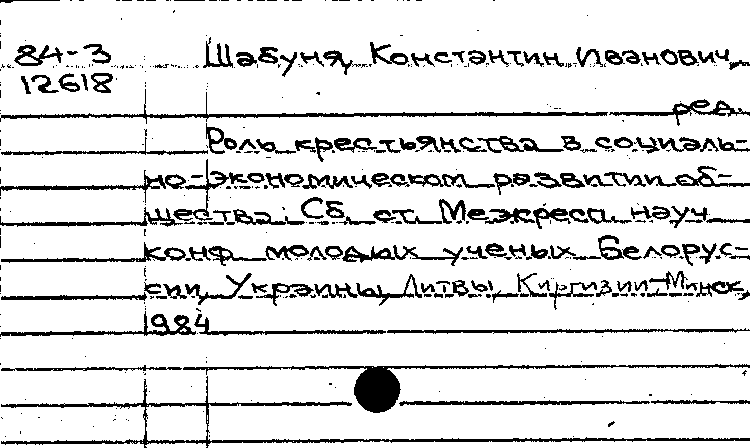 84-3 Шабуня, Константин Иванович,
12618
ред.
Роль крестьянства в социаль-
но-экономическом развитии об-
щества: Сб. ст. Межресп. науч.
конф. молодых ученых Белорус-
сии, Украины, Литвы, Киргизии.-Минск,
1984